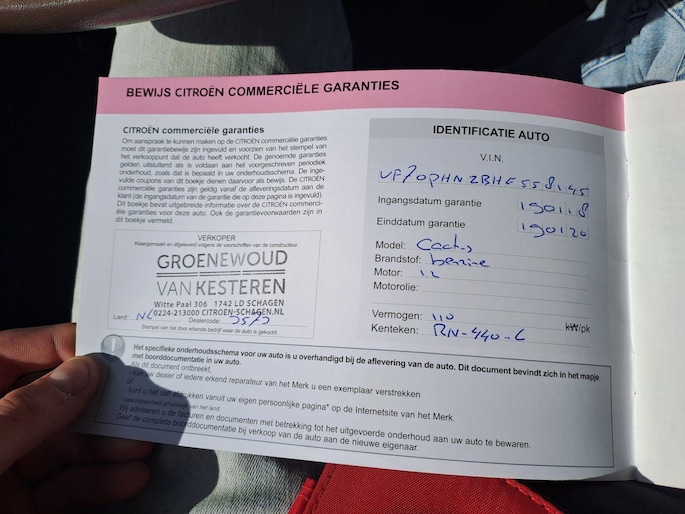 BEWIJS CITROËN COMMERCIËLE GARANTIES
CITROËN commerciële garanties
Om aanspraak te kunnen maken op de CITROËN commerciële garanties
moet dit garantiebewijs zijn ingevuld en voorzien van het stempel van
het verkooppunt dat de auto heeft verkocht. De genoemde garanties
gelden uitsluitend als is voldaan aan het voorgeschreven periodiek
onderhoud, zoals dat is bepaald in uw onderhoudsschema. De inge-
vulde coupons van dit boekje dienen daarvoor als bewijs. De CITROËN
commerciële garanties zijn geldig vanaf de afleveringsdatum aan de
klant (de ingangsdatum van de garantie die op deze pagina is ingevuld).
Dit boekje bevat uitgebreide informatie over de CITROËN commerci-
ële garanties voor deze auto. Ook de garantievoorwaarden zijn in
dit boekje vermeld.
VERKOPER
Klaargemaakt en afgeleverd volgens de voorschriften van de constructeur.
GROENEWOUD
VAN KESTEREN
Witte Paal 306 1742 LD SCHAGEN
0224-213000 CITROEN-SCHAGEN.NL
Land: NL Dealercode:
Stempel van het door erkende bedrijf waar de auto is gekocht
IDENTIFICATIE AUTO
V.I.N.
VF70PHNZBHE558145
Ingangsdatum garantie 190118
Einddatum garantie 190120
Model: Cactus
Brandstof: benzine
Motor: 1.2
Motorolie:
Vermogen: 110 kW/pk
Kenteken: RN-440-L
Het specifieke onderhoudsschema voor uw auto is u overhandigd bij de aflevering van de auto. Dit document bevindt zich in het mapje
met boorddocumentatie in uw auto.
Als dit document ontbreekt,
uw dealer of iedere erkend reparateur van het Merk u een exemplaar verstrekken
of
kunt u het zelf afdrukken vanuit uw eigen persoonlijke pagina* op de Internetsite van het Merk.
Wij adviseren u de facturen en documenten met betrekking tot het uitgevoerde onderhoud aan uw auto te bewaren.
Geef de complete boorddocumentatie bij verkoop van de auto aan de nieuwe eigenaar.